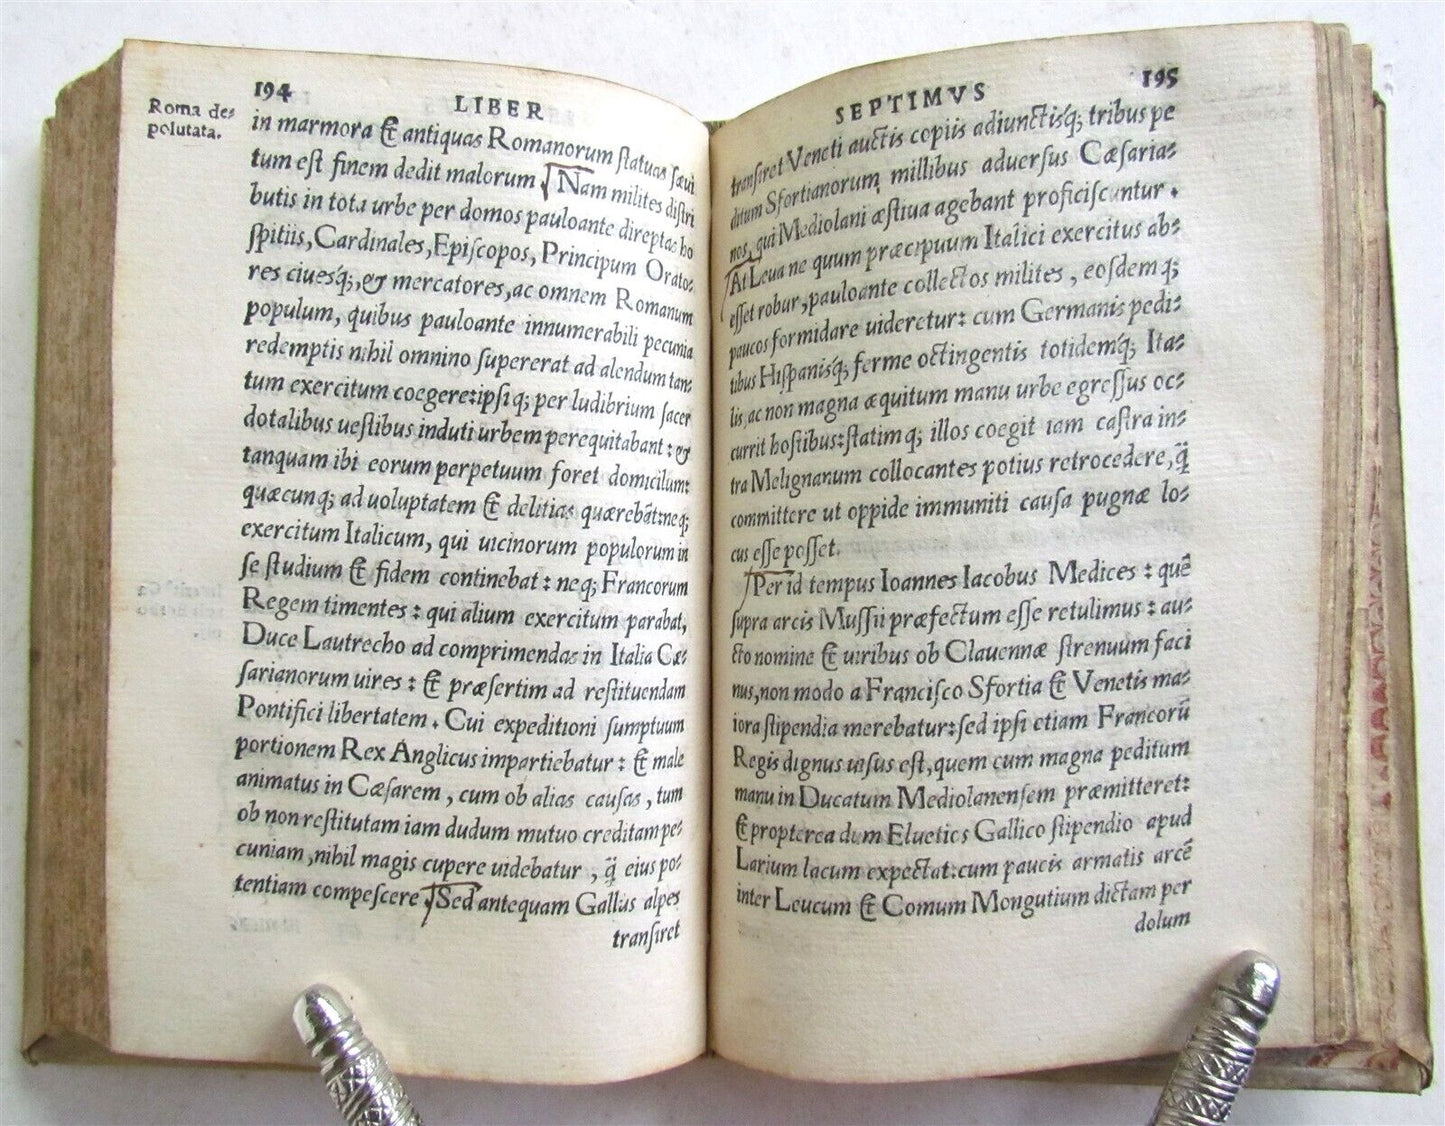 194
LIBER
Roma de⸗
polutata.
in marmora & antiquas Romanorum ſtatuas ſæui
tum eſt finem dedit malorum Nam milites diſtri
butis in tota urbe per domos pauloante direptas ho
ſpitiis, Cardinales, Epiſcopos, Principum Orato⸗
res ciuesq́;, & mercatores, ac omnem Romanum
populum, quibus pauloante innumerabili pecunia
redemptis nihil omnino ſupererat ad alendum tan⸗
tum exercitum coegere: ipſi q; per ludibrium ſacer
dotalibus ueſtibus induti urbem perequitabant: &
tanquam ibi eorum perpetuum foret domicilum:
quæcunq; ad uoluptatem & delitias quærebãt: neq;
exercitum Italicum, qui uicinorum populorum in
ſe ſtudium & fidem continebat: neq; Francorum
Regem timentes: qui alium exercitum parabat,
Duce Lautrecho ad comprimendas in Italia Cæ⸗
ſarianorum uires: & præſertim ad reſtituendam
Pontifici libertatem. Cui expeditioni ſumptuum
portionem Rex Anglicus impartiebatur: & male
animatus in Cæſarem, cum ob alias cauſas, tum
ob non reſtitutam iam dudum mutuo creditam pe⸗
cuniam, nihil magis cupere uidebatur, q̃ eius po⸗
tentiam compeſcere Sed antequam Gallus alpes
tranſiret
SEPTIMVS
195
tranſiret Veneti auctis copiis adiunctisq́; tribus pe
ditum Sfortianorum millibus aduerſus Cæſaria⸗
nos, qui Mediolani æſtiua agebant proficiſcuntur.
At Leua ne quum præcipuum Italici exercitus ab⸗
eſſet robur, pauloante collectos milites, eoſdem q;
paucos formidare uideretur: cum Germanis pedi⸗
tibus Hiſpanisq́; ferme octingentis totidemq́; Ita⸗
lis, ac non magna æquitum manu urbe egreſſus oc⸗
currit hoſtibus: ſtatim q; illos coegit iam caſtra in⸗
tra Melignanum collocantes potius retrocedere, q̃
committere ut oppide immuniti cauſa pugnæ lo⸗
cus eſſe poſſet.
Per id tempus Ioannes Iacobus Medices: quẽ
ſupra arcis Muſſii præfectum eſſe retulimus: au⸗
cto nomine & uiribus ob Clauennæ ſtrenuum faci
nus, non modo a Franciſco Sfortia & Venetis ma⸗
iora ſtipendia merebatur: ſed ipſi etiam Francorũ
Regis dignus uiſus eſt, quem cum magna peditum
manu in Ducatum Mediolanenſem præmitteret:
& propterea dum Eluetios Gallico ſtipendio apud
Larium lacum expectat: cum paucis armatis arcẽ
inter Leucum & Comum Mongutium dictam per
dolum